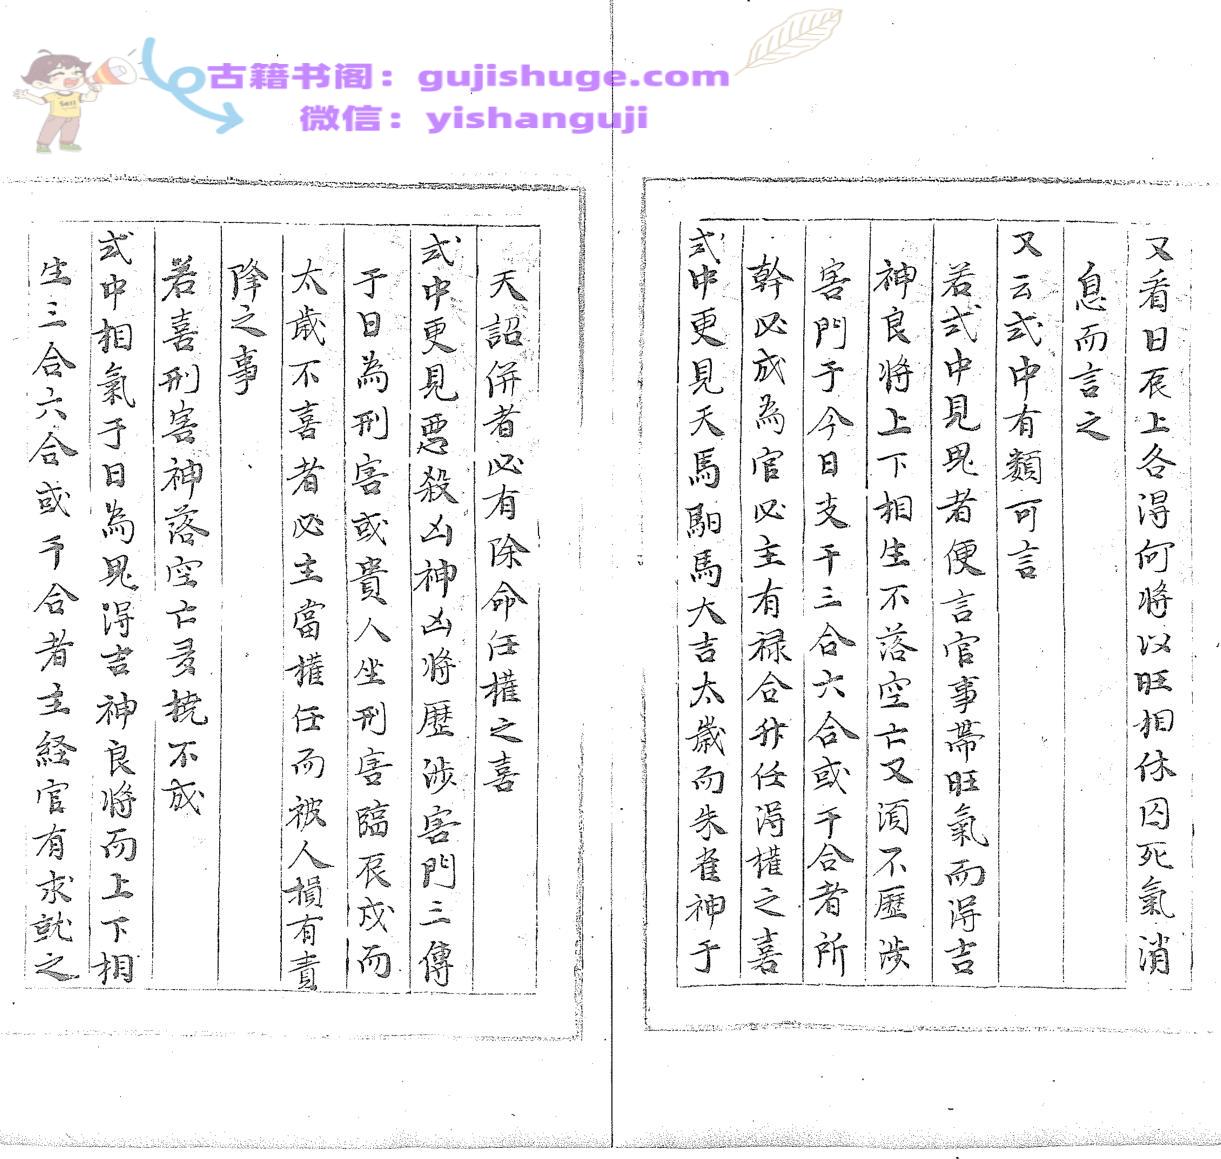 古籍书阁：gujishuge.com
微信：yishanguji
Sell
又看日辰上各得何将以旺相休囚死氣消
息而言之
又云式中有類可言
若式中見鬼者便言官事帶旺氣而得吉
神良将上下相生不落空亡又須不歷涉
害門于今日支干三合六合或干合者所
幹必成為官必主有禄合升任得權之喜
式中更見天馬馹馬大吉太歲而朱雀神于
天詔併者必有除命任權之喜
式中更見惡殺凶神凶将歷涉害門三傳
于日為刑害或貴人坐刑害臨辰戌而
太歲不喜者必主當權任而被人損有責
降之事
若喜刑害神落空亡憂撓不成
式中相氣于日為鬼得吉神良将而上下相
生三合六合或干合者主経官有求就之